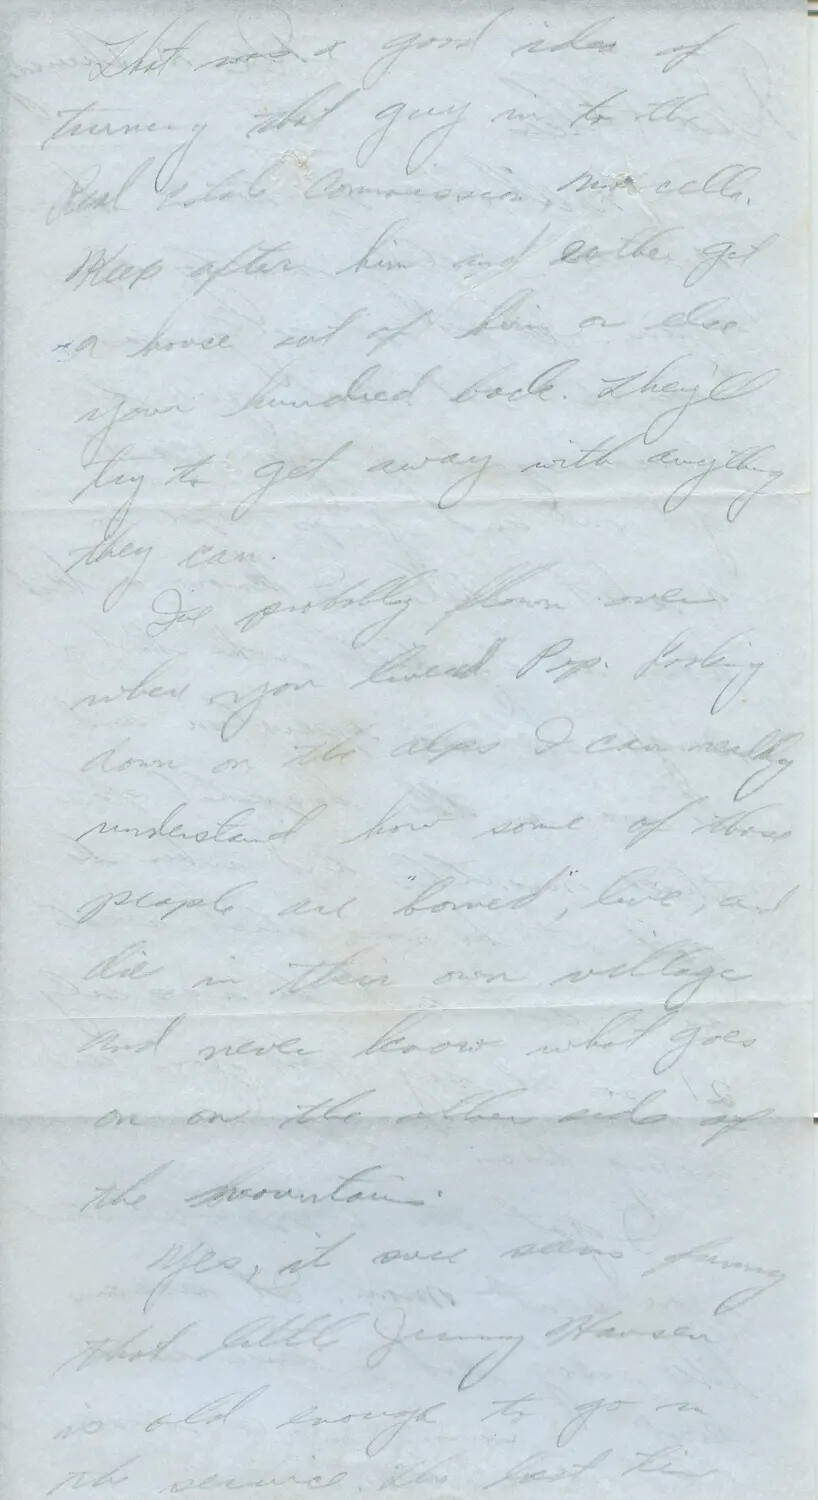 That was a good idea of
turning that guy in to the
Real Estate Commission, Marcella.
Keep after him and either get
a house out of him or else
your hundred back. They'll
try to get away with anything
they can.
I've probably flown over
where you lived Pop. Looking
down on the alps I can really
understand how some of those
people are "borned", live, and
die in their own village
and never know what goes
on on the other side of
the mountains.
Yes, it sure seems funny
that little Jimmy Hansen
is old enough to go in
the service. The last